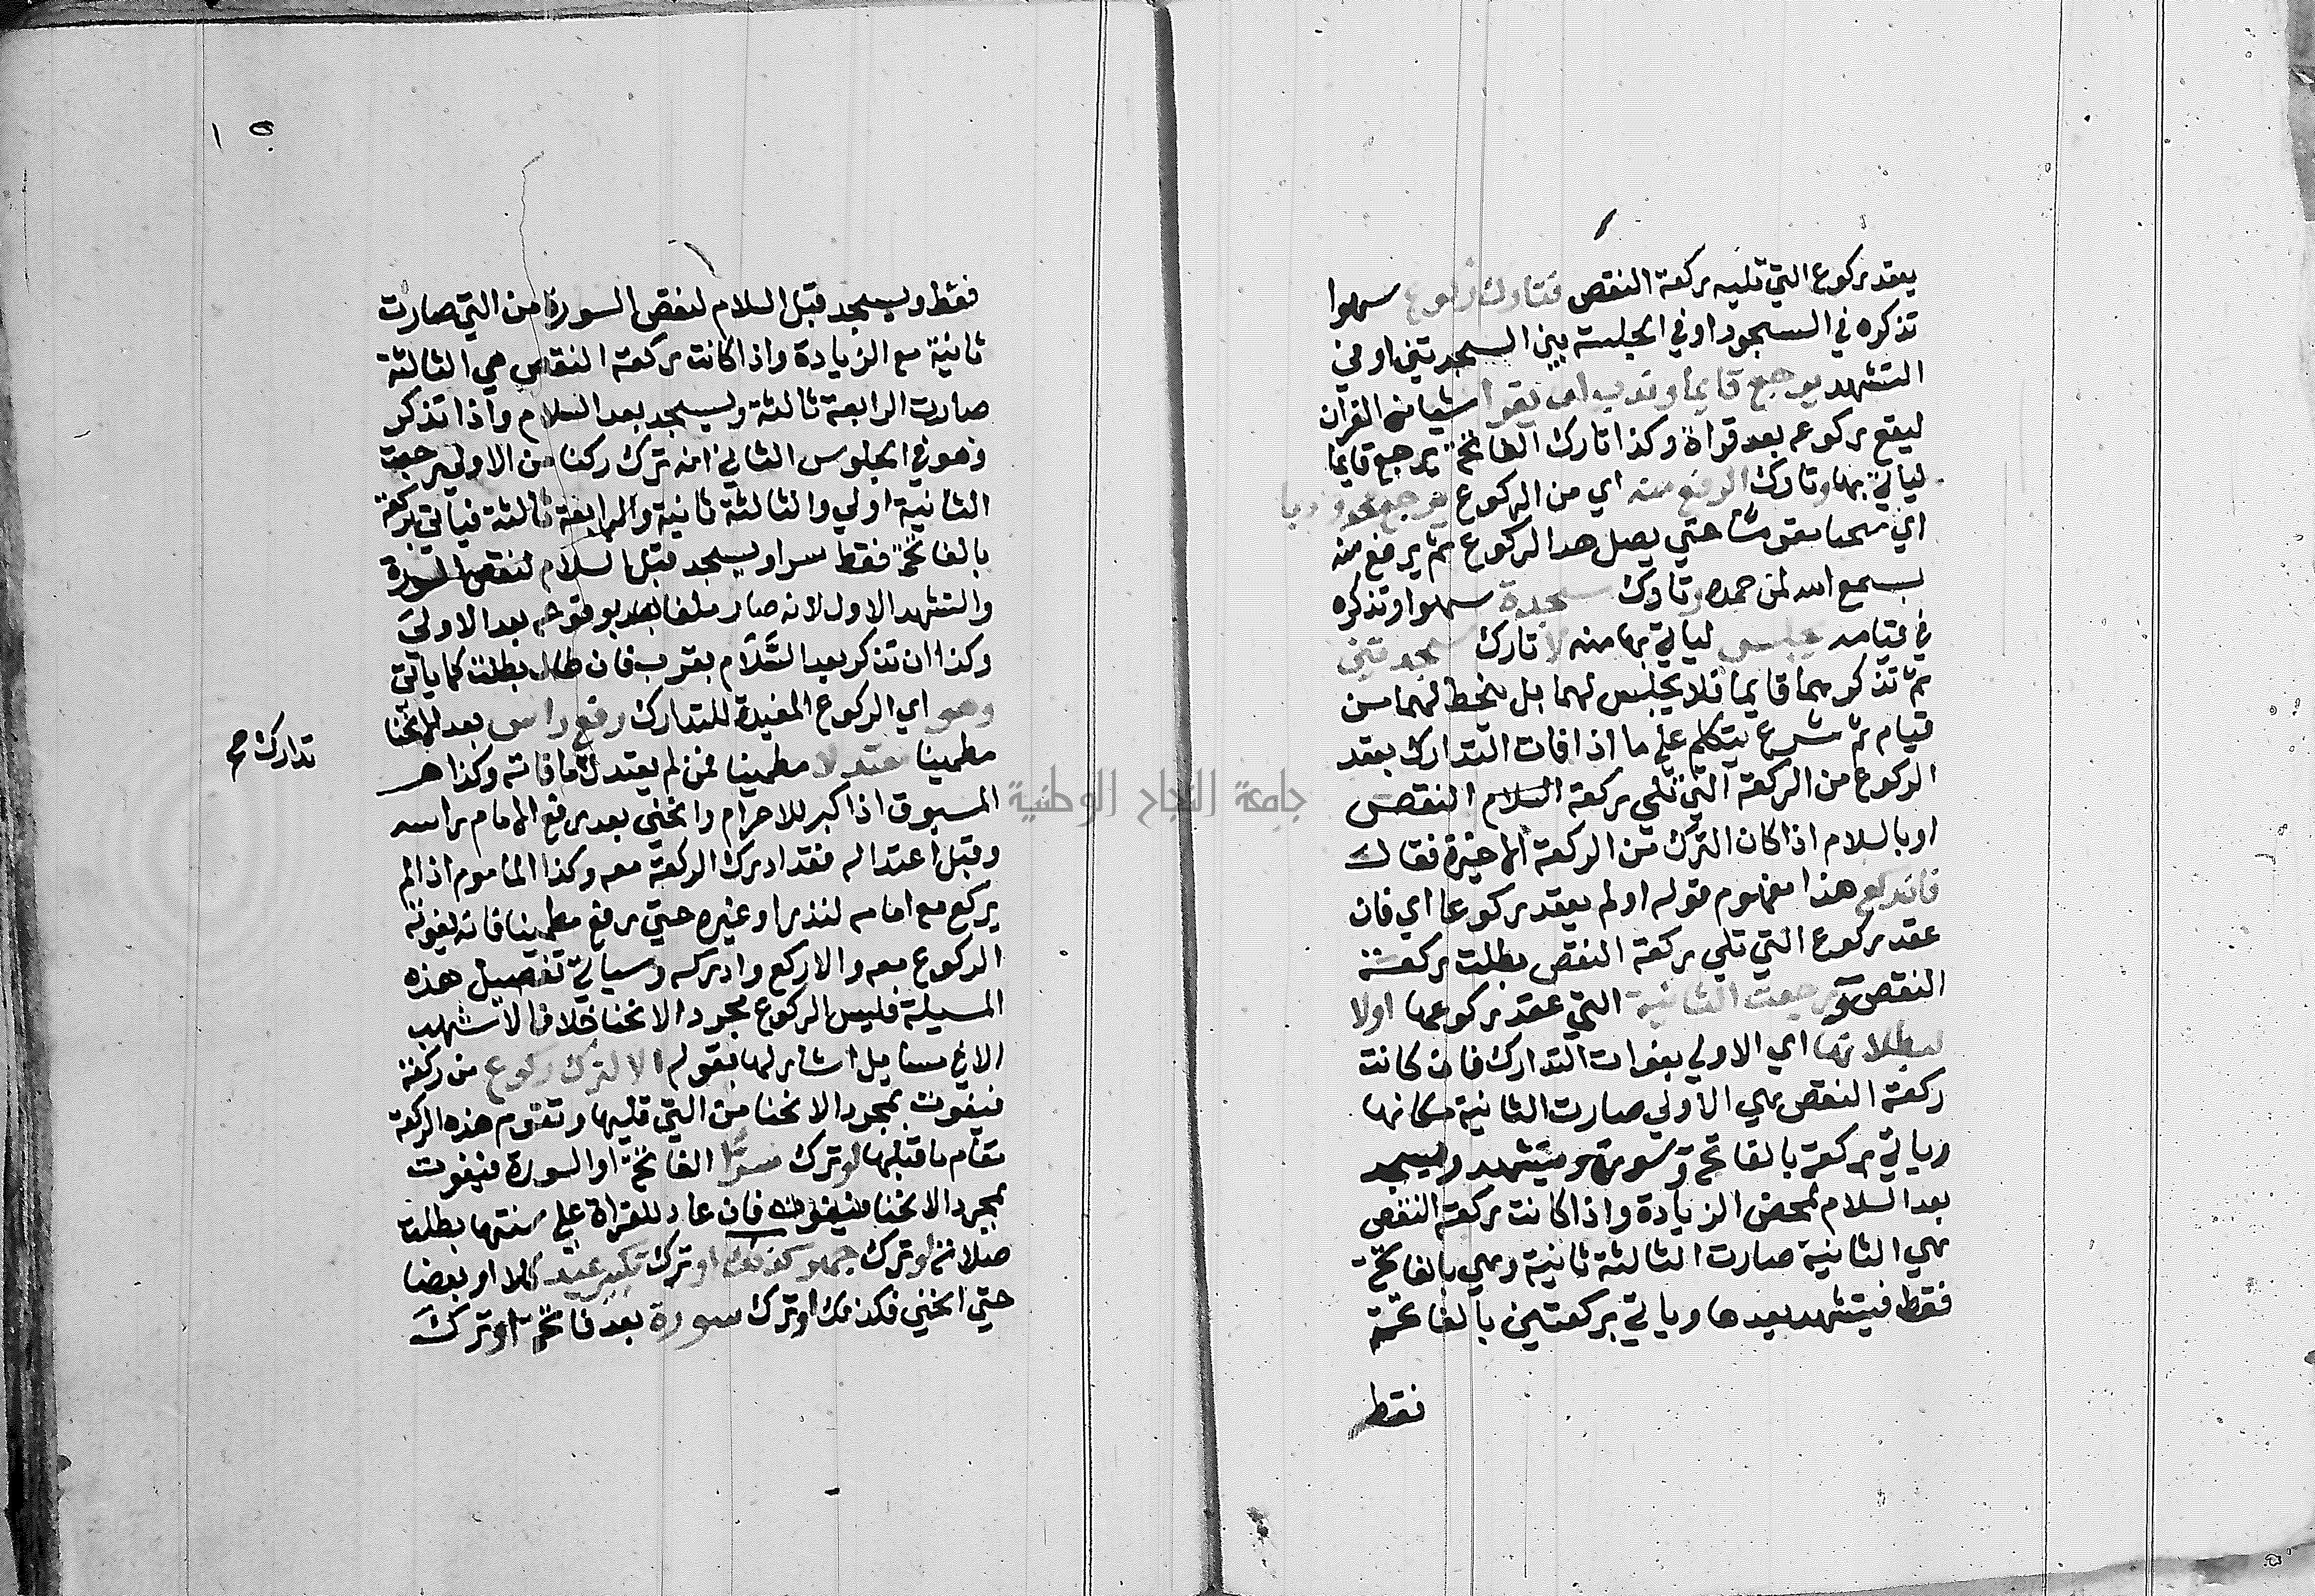 يعقد ركوع التي تليه ركعة النقص فتارك ركوع سهوا
تذكره في السجود او في الجلسة بين السجدتين او في
التشهد يرجع قايما وندب ان يقرا شيا من القران
ليقع ركوعه بعد قراة وكذا تارك الفاتحة يرجع قايما
لياتي بها وتارك الرفع منه اي من الركوع يرجع محدودبا
اي حتي يصل حد الركوع ثم يرفع منه
بسمع الله لمن حمده وتارك سجدة سهوا وتذكره
في قيامه يجلس لياتي بها منه لا تارك سجدتين
ثم تذكرهما قايما فلا يجلس لهما بل ينحط لهما من
قيام ثم شرع يتكلم علي ما اذا فات التدارك بعقد
الركوع من الركعة التي تلي ركعة السلام النقص
او بالسلام اذا كان الترك من الركعة الاخيرة فقال
فان ركع هذا مفهوم قوله او لم يعقد ركوعا اي فان
عقد ركوع التي تلي ركعة النقص بطلت ركعة
النقص ورجعت الثانية التي عقد ركوعها اولا
لبطلانها اي الاولي بفوات التدارك فان كانت
ركعة النقص هي الاولي صارت الثانية مكانها
وياتي بركعة بالفاتحة وسورة ويتشهد ويسجد
بعد السلام لمحض الزيادة واذا كانت ركعة النقص
هي الثانية صارت الثالثة ثانية وهي بالفاتحة
فقط فيتشهد بعدها وياتي بركعتين بالفاتحة
فقط
١٥
فقط ويسجد قبل السلام لنقص السورة من التي صارت
ثانية مع الزيادة واذا كانت ركعة النقص هي الثالثة
صارت الرابعة ثالثة ويسجد بعد السلام واذا تذكر
وهو في الجلوس الثاني انه ترك ركنا من الاولي رجعت
الثانية اولي والثالثة ثانية والرابعة ثالثة فياتي بركعة
بالفاتحة فقط سرا ويسجد قبل السلام لنقص السورة
والتشهد الاول لانه صار ملغا بوقوعه بعد الاولي
وكذا ان تذكر بعد السلام بقرب فان طال بطلت كما ياتي
وهو اي الركوع المفيدة للتدارك رفع راس بعد الانحنا
مطمينا معتدلا مطمينا فمن لم يعتدل ما فاته وكذا
تدارك صح
المسبوق اذا كبر للاحرام وانحني بعد رفع الامام راسه
وقبل اعتداله فقد ادرك الركعة معه وكذا الماموم اذا لم
يركع مع امامه لعذر او غيره حتي رفع مطمينا فانه يفوته
الركوع معه والا ركع وادركه وسياتي تفصيل هذه
المسيلة فليس الركوع مجرد الانحنا خلافا لاشهب
الا في مسايل اشار لها بقوله الا لترك ركوع من ركعة
فيفوت بمجرد الانحنا من التي تليها وتقوم هذه الركعة
مقام ما قبلها او ترك سرا الفاتحة او السورة فيفوت
بمجرد الانحنا فان عاد للقراة علي سنتها بطلت
صلاته او ترك جهر كذلك او ترك تكبير عيد كلا او بعضا
حتي انحني فكذلك او ترك سورة بعد فاتحة او ترك
جامعة النجاح الوطنية